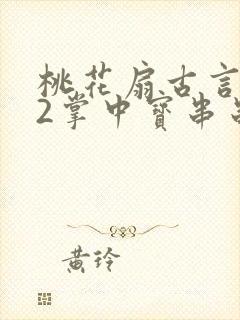 桃花扇古言
2掌中寶串
黄玲